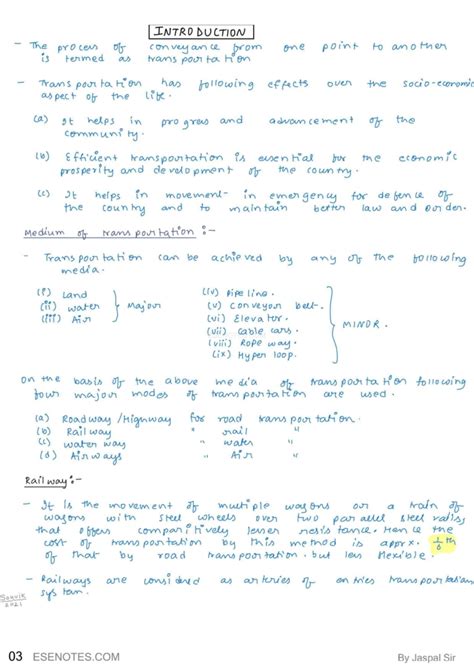 INTRODUCTION
- The process of conveyance from one point to another
is termed as transportation
- Transportation has following effects over the socio-economic
aspect of the life.
(a) It helps in progress and advancement of the
community.
(b) Efficient transportation is essential for the economic
prosperity and development of the country.
(c) It helps in movement- in emergency for defence of
the country and to maintain better law and order.
Medium of transportation :-
- Transportation can be achieved by any of the following
media.
(i) Land
(ii) water
(iii) Air
} Major
(iv) Pipeline.
(v) Conveyor belt.
(vi) Elevator.
(vii) Cable cars.
(viii) Rope way.
(ix) Hyper loop.
} MINOR.
On the basis of the above media of transportation following
four major modes of transportation are used.
(a) Roadway/Highway for road transportation.
(b) Railway " rail "
(c) water way " water "
(d) Airways " Air "
Railway :-
- It is the movement of multiple wagons or a train of
wagons with steel wheels over two parallel steel rails,
that offers comparitively lesser resistance. Hence the
cost of transportation by this method is apprx. 1/6 th
of that by road transportation. but less flexible.
- Railways are considered as arteries of entries transportation
system.
2021
03 ESENOTES.COM By Jaspal Sir